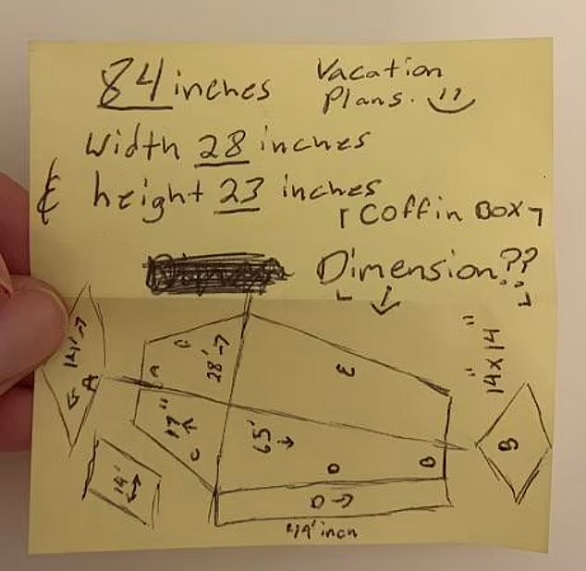 84 inches
Vacation
Plans.
Width 28 inches
& height 23 inches
"Coffin Box"
Dimension??
14'
A
28'
C
A
17"
C
E
65'
D
B
D
14'
"14x14"
B